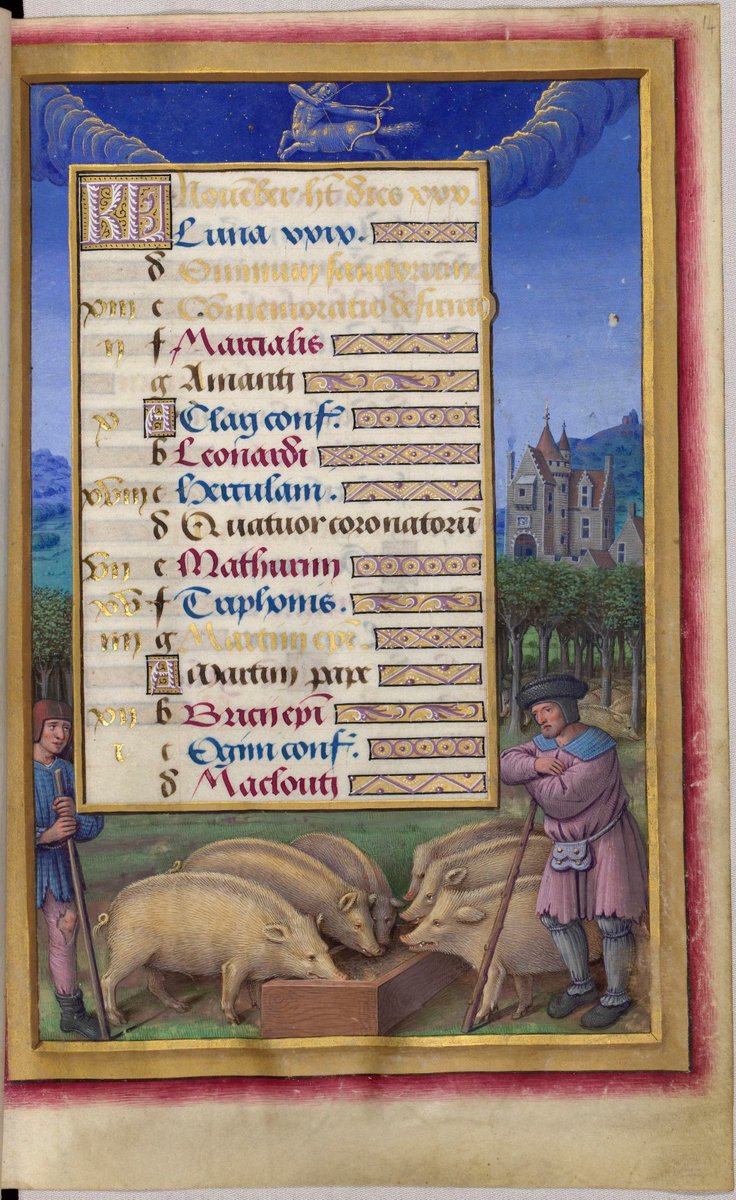 14
KL Nouēber ht̄ dies xxx.
Luna xxix.
d Omnium sanctorum.
xiii e Cōmemoratio defunct
ii f Martialis
g Amanti
x A Clari conf.
b Leonardi
xviii c Herculani.
d Quatuor coronatorū
vii e Mathurini
xv f Triphonis.
iiii g Martini epi.
A Martini pape
xii b Bricii epi
i c Ogini conf.
d Maclouti